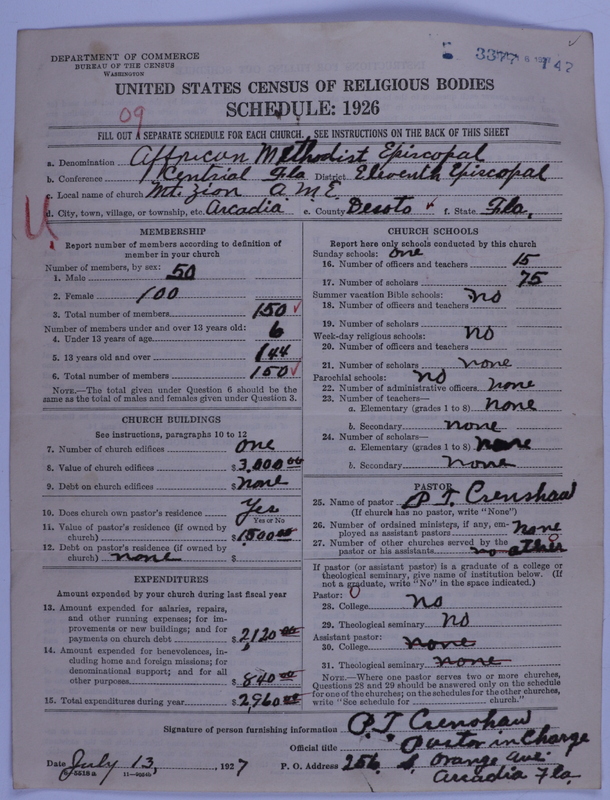 DEPARTMENT OF COMMERCE
BUREAU OF THE CENSUS
WASHINGTON
3377
142
UNITED STATES CENSUS OF RELIGIOUS BODIES
SCHEDULE: 1926
09
FILL OUT A SEPARATE SCHEDULE FOR EACH CHURCH. SEE INSTRUCTIONS ON THE BACK OF THIS SHEET
a. Denomination Affrican Methodist Episcopal
b. Conference Centrial Fla District Eleventh Episcopal
c. Local name of church Mt. Zion A.M.E.
d. City, town, village, or township, etc. Arcadia e. County Desoto f. State Fla.
MEMBERSHIP
Report number of members according to definition of
member in your church
Number of members, by sex:
1. Male 50
2. Female 100
3. Total number of members 150
Number of members under and over 13 years old:
4. Under 13 years of age 6
5. 13 years old and over 144
6. Total number of members 150
NOTE.—The total given under Question 6 should be the
same as the total of males and females given under Question 3.
CHURCH BUILDINGS
See instructions, paragraphs 10 to 12
7. Number of church edifices one
8. Value of church edifices $3,000 00
9. Debt on church edifices $none
10. Does church own pastor's residence Yes
Yes or No
11. Value of pastor's residence (if owned by
church) $1500 00
12. Debt on pastor's residence (if owned by
church) none $
EXPENDITURES
Amount expended by your church during last fiscal year
13. Amount expended for salaries, repairs,
and other running expenses; for im-
provements or new buildings; and for
payments on church debt $2120 00
14. Amount expended for benevolences, in-
cluding home and foreign missions; for
denominational support; and for all
other purposes $840 00
15. Total expenditures during year $2,960 00
CHURCH SCHOOLS
Report here only schools conducted by this church
Sunday schools: one
16. Number of officers and teachers 15
17. Number of scholars 75
Summer vacation Bible schools: No
18. Number of officers and teachers
19. Number of scholars
Week-day religious schools: No
20. Number of officers and teachers
21. Number of scholars none
Parochial schools: No
22. Number of administrative officers none
23. Number of teachers—
a. Elementary (grades 1 to 8) none
b. Secondary none
24. Number of scholars—
a. Elementary (grades 1 to 8) none
b. Secondary none
PASTOR
25. Name of pastor P T Crenshaw
(If church has no pastor, write "None")
26. Number of ordained ministers, if any, em-
ployed as assistant pastors none
27. Number of other churches served by the
pastor or his assistants no other
If pastor (or assistant pastor) is a graduate of a college or
theological seminary, give name of institution below. (If
not a graduate, write "No" in the space indicated.)
Pastor:
28. College No
29. Theological seminary No
Assistant pastor:
30. College none
31. Theological seminary none
NOTE.—Where one pastor serves two or more churches,
Questions 28 and 29 should be answered only on the schedule
for one of the churches; on the schedules for the other churches,
write "See schedule for church."
Signature of person furnishing information P. T Crenshaw
Official title Pastor in Charge
Date July 13, 1927 P. O. Address 256 S. Orange Ave.
Arcadia Fla.